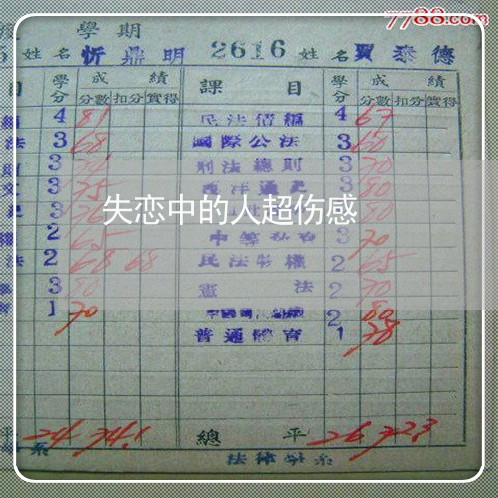 7788.com
學期
姓名 忻鼎明 2616 姓名 賈泰德
目 學分 成績 課目 學分 成績
分數 扣分 實得 分數 扣分 實得
4 81 民法債編 4 67
法 3 68 國際公法 3 60
3 刑法總則 3 70
3 75 西洋通史 3 80
3 3 80
失恋中的人超伤感
權 2 65 3 70
法 2 68 68 民法物權 2 65
3 80 憲法 2 70
1 70 2 80
普通體育 1 78
平 24 74.1 總平 26 72.3
系 法律學系